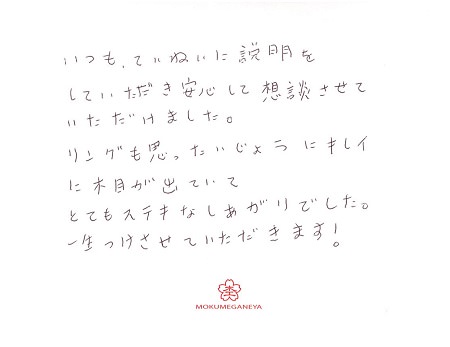 いつも、ていねいに説明を
していただき安心して想談させて
いただけました。
リングも思ったいじょうにキレイ
に木目が出ていて
とてもステキなしあがりでした。
一生つけさせていただきます!
MOKUMEGANEYA